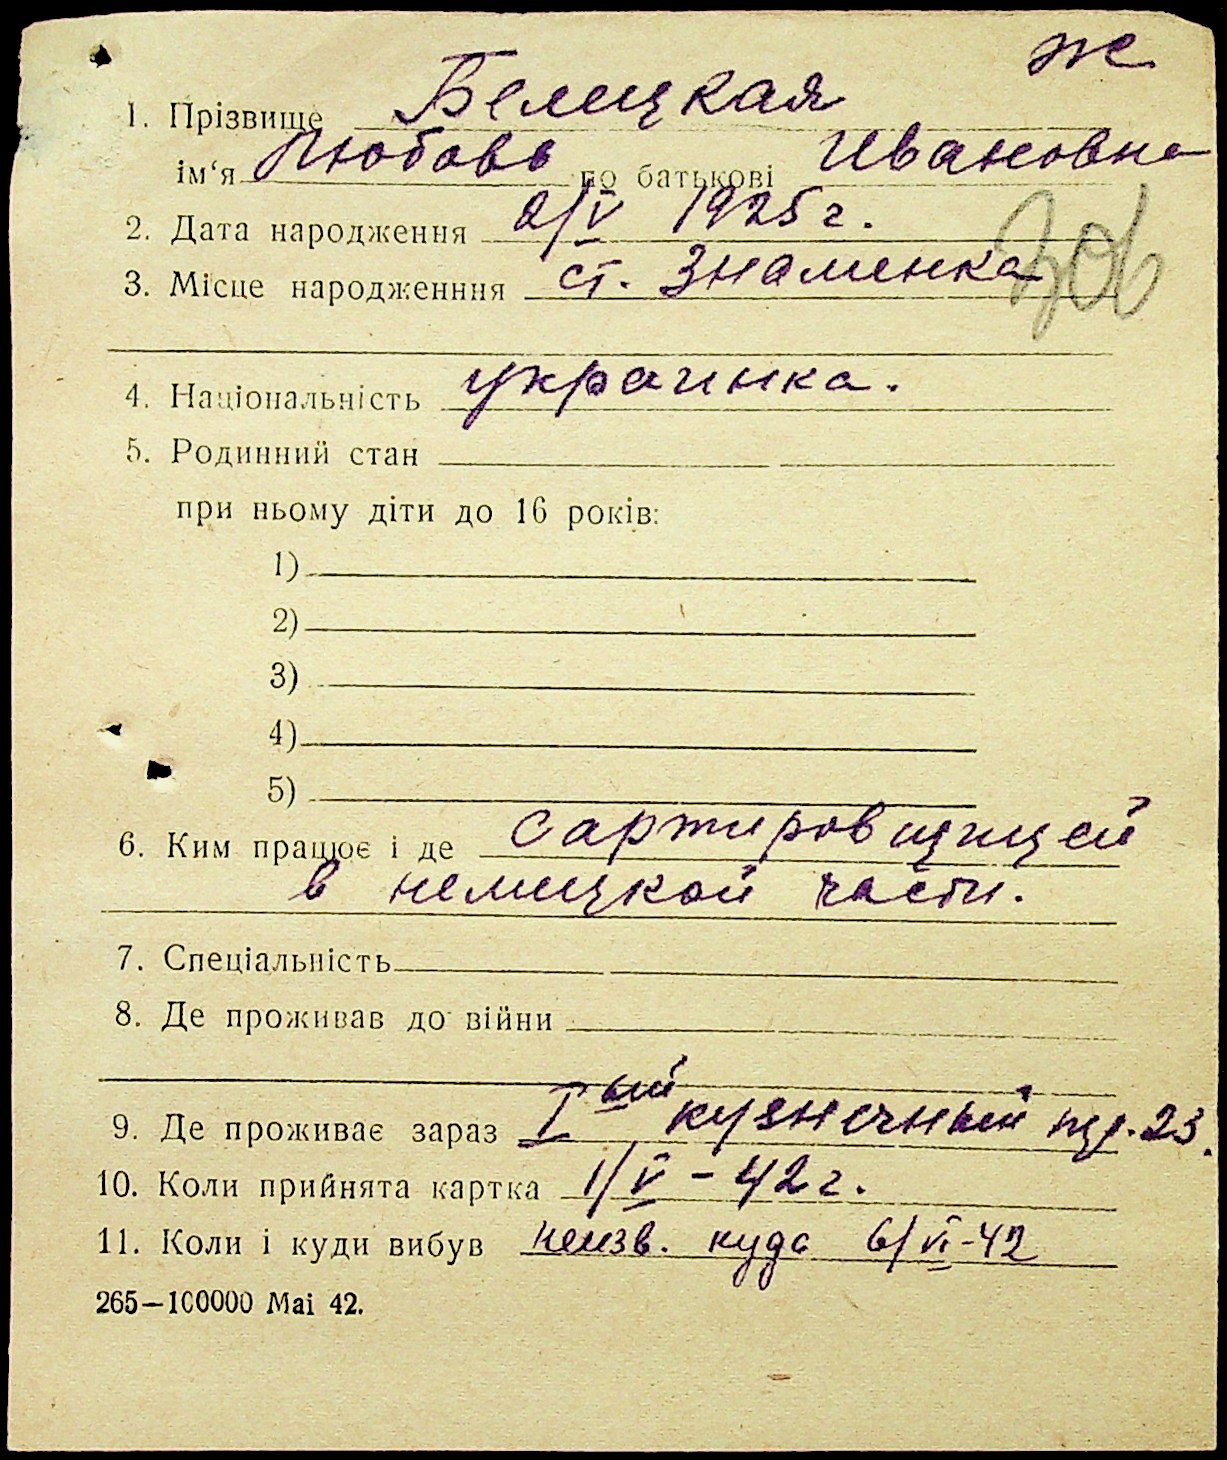 ж
1. Прізвище Белицкая
ім‘я Любовь по батькові Ивановна
2. Дата народження 2/V 1925 г.
3. Місце народженння ст. Знаменка
4. Національність украинка.
5. Родинний стан
при ньому діти до 16 років:
1)
2)
3)
4)
5)
6. Ким працює і де сартировщицей
в немецкой части.
7. Спеціальність
8. Де проживав до війни
9. Де проживає зараз I ый кузнечный пер. 23.
10. Коли прийнята картка 1/V – 42 г.
11. Коли і куди вибув неизв. куда 6/VI-42
265—100000 Mai 42.